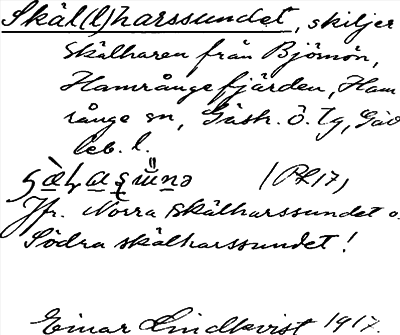 Skäl(l)harssundet, skiljer
Skälharen från Björnön,
Hamrångefjärden, Ham
rånge sn, Gästr. Ö. Tg, Gäv
leb. l.
(Pk 17)
Jfr. Norra Skälharssundet o.
Södra skälharssundet!
Einar Lindkvist 1917.